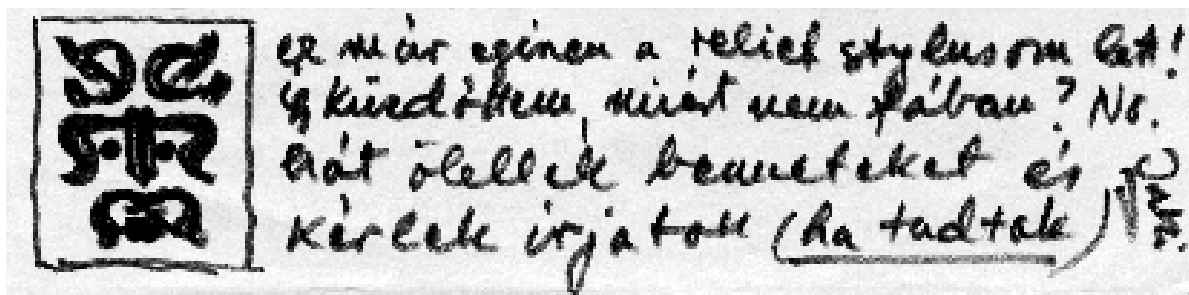 ez már egészen a relief stylusom lett!
így küzdöttem, miért nem fában? No.
hát ölellek benneteket és
kérlek irjatok (ha tudtok)